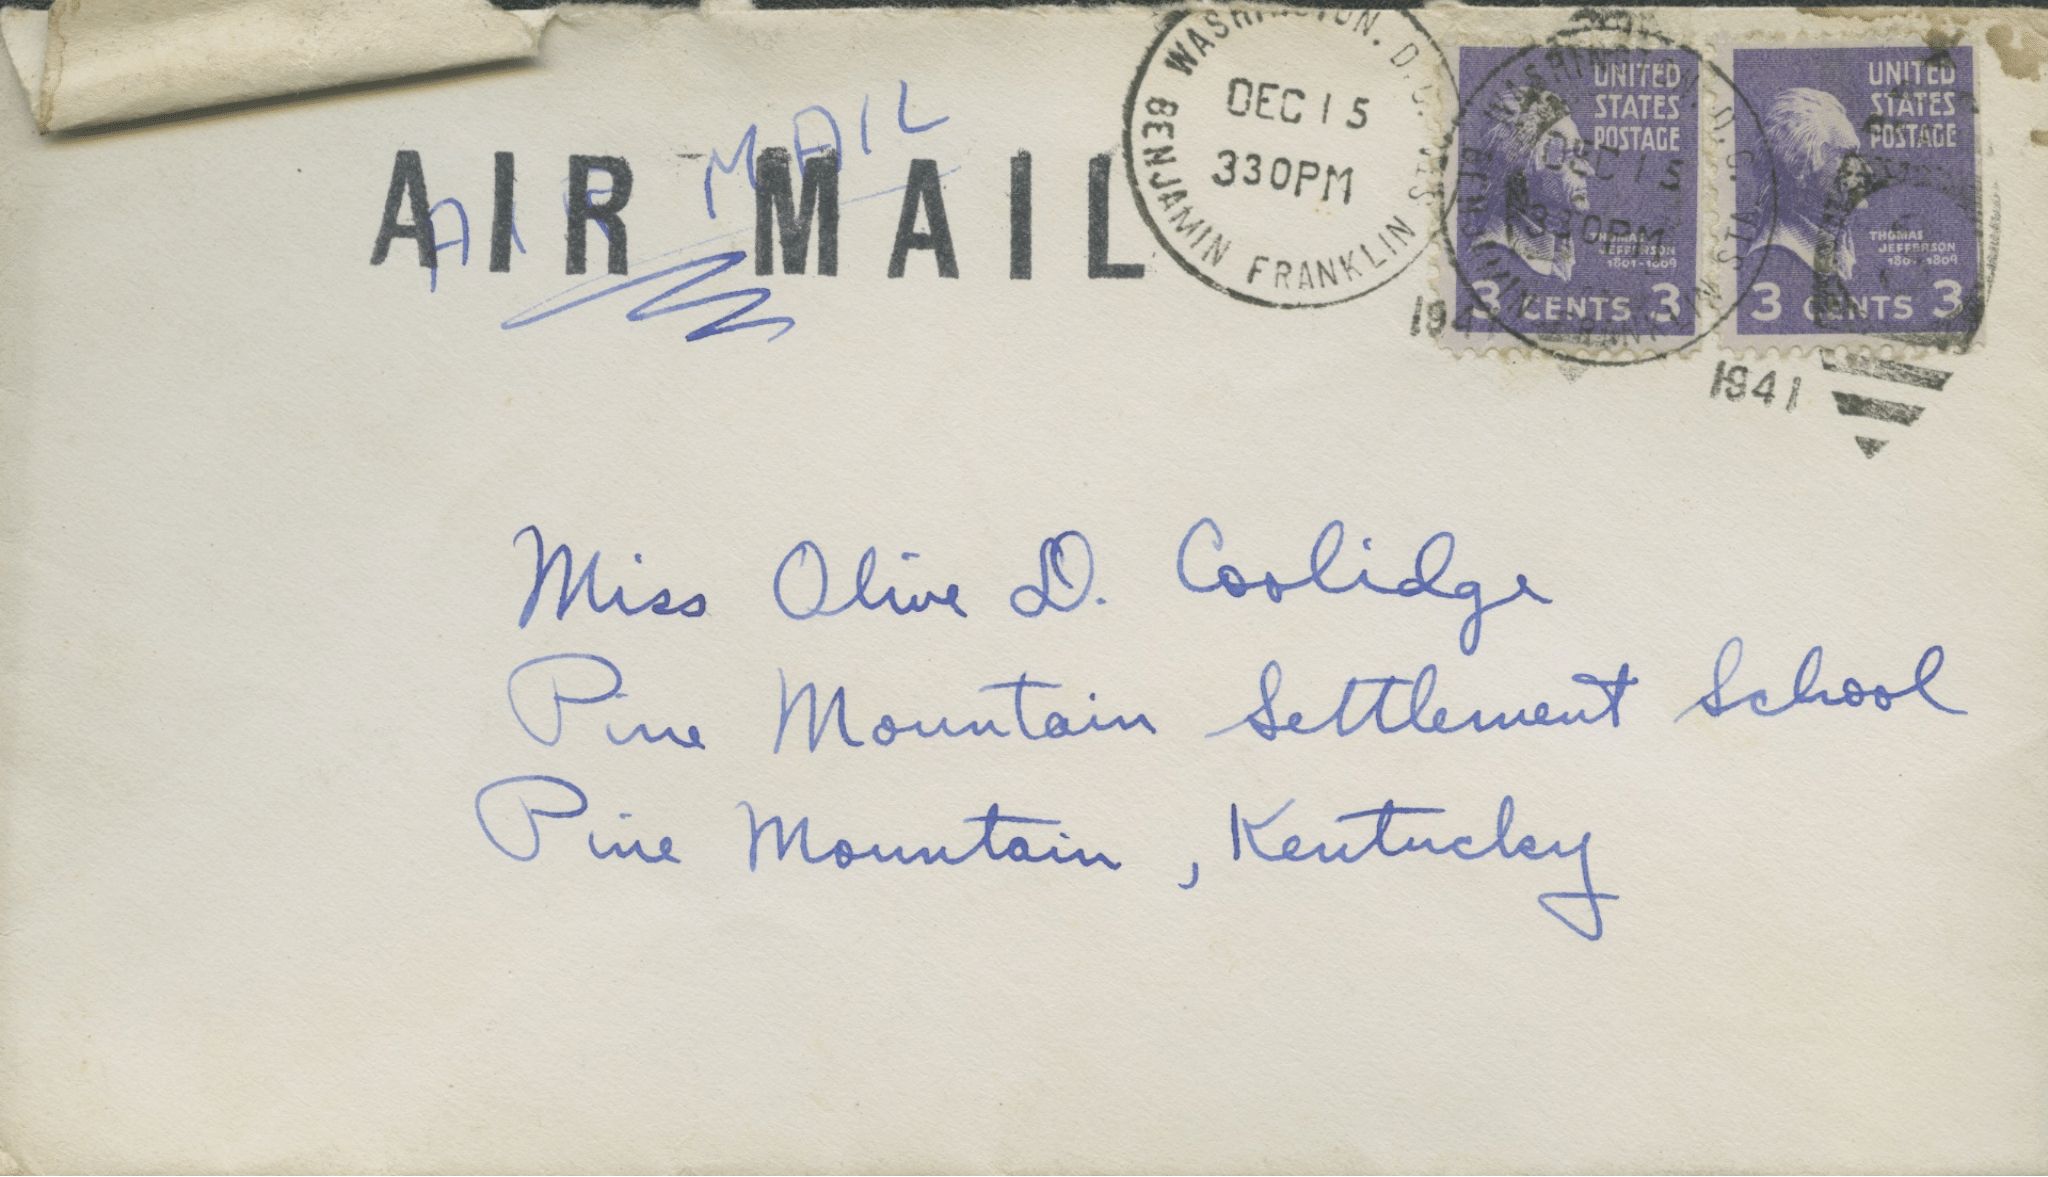 AIR MAIL
AIR MAIL
WASHINGTON, D.C.
DEC 15
330PM
BENJAMIN FRANKLIN STA.
1941
WASHINGTON, D.C.
DEC 15
330PM
BENJAMIN FRANKLIN STA.
1941
UNITED
STATES
POSTAGE
THOMAS
JEFFERSON
1801-1809
3 CENTS 3
UNITED
STATES
POSTAGE
THOMAS
JEFFERSON
1801-1809
3 CENTS 3
Miss Olive D. Coolidge
Pine Mountain Settlement School
Pine Mountain, Kentucky